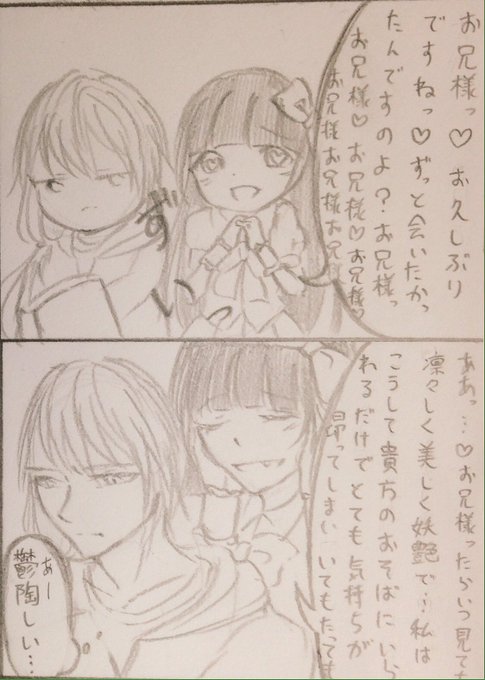 お兄様っ♡お久しぶり
ですねっ♡ずっと会いたかっ
たんですのよ?お兄様っ
お兄様♡お兄様♡お兄様♡
お兄様お兄様お兄様お兄
ずいっ
ああっ…♡お兄様ったらいつ見ても
凛々しく美しく妖艶で…私は
こうして貴方のおそばにいら
れるだけでとても気持ちが
昂ってしまい いてもたっても
あー
鬱陶しい…